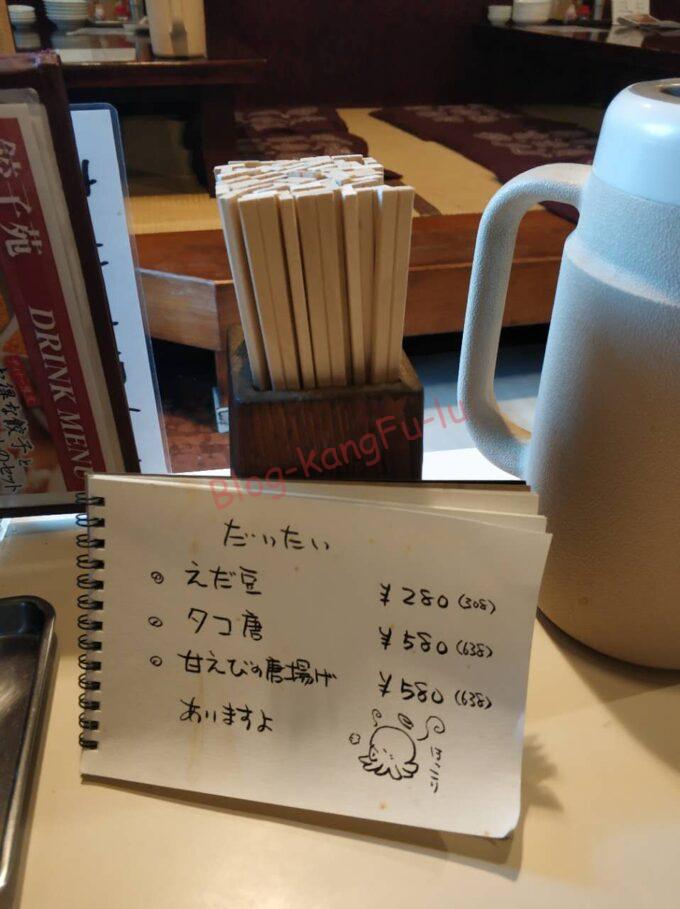 餃子苑
DRINK MENU
のセット
Blog-kangFu-lu
だいたい
◎ えだ豆 ¥280(308)
◎ タコ唐 ¥580(638)
◎ 甘えびの唐揚げ ¥580(638)
ありますよ